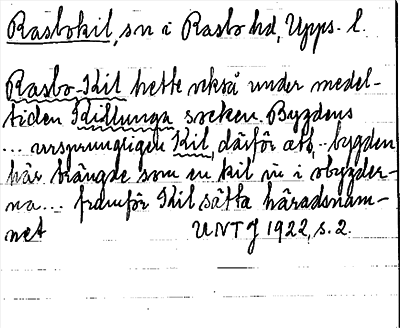 Rasbokil, sn i Rasbo hd, Upps. l.
Rasbo-Kil hette också under medel-
tiden Kidlunga socken. Bygdens
... ursprungligen Kil, därför att .. bygden
här trängde som en kil in i obygder-
na ... framför Kil sätta häradsnam-
net UNTJ 1922, s. 2.